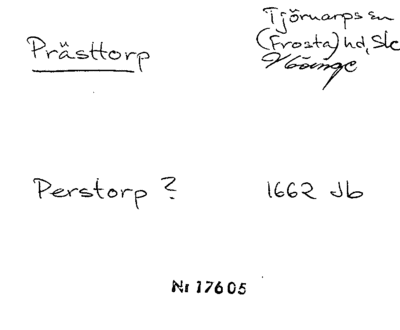 Tjörnarps sn
Prästtorp (Frosta) hd, Sk
Höinge
Perstorp ? 1662 Jb
Nr 17605